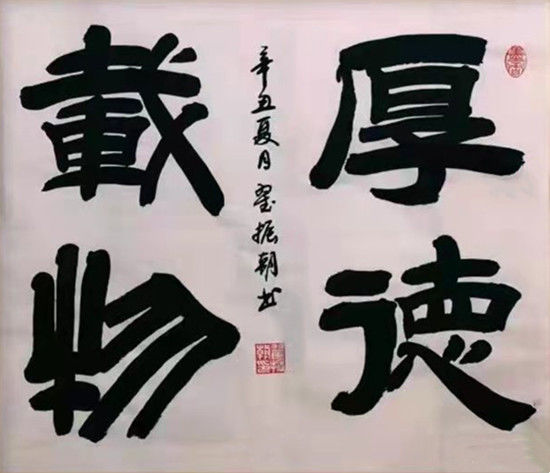 厚德
載物
辛丑夏月翟振朝书